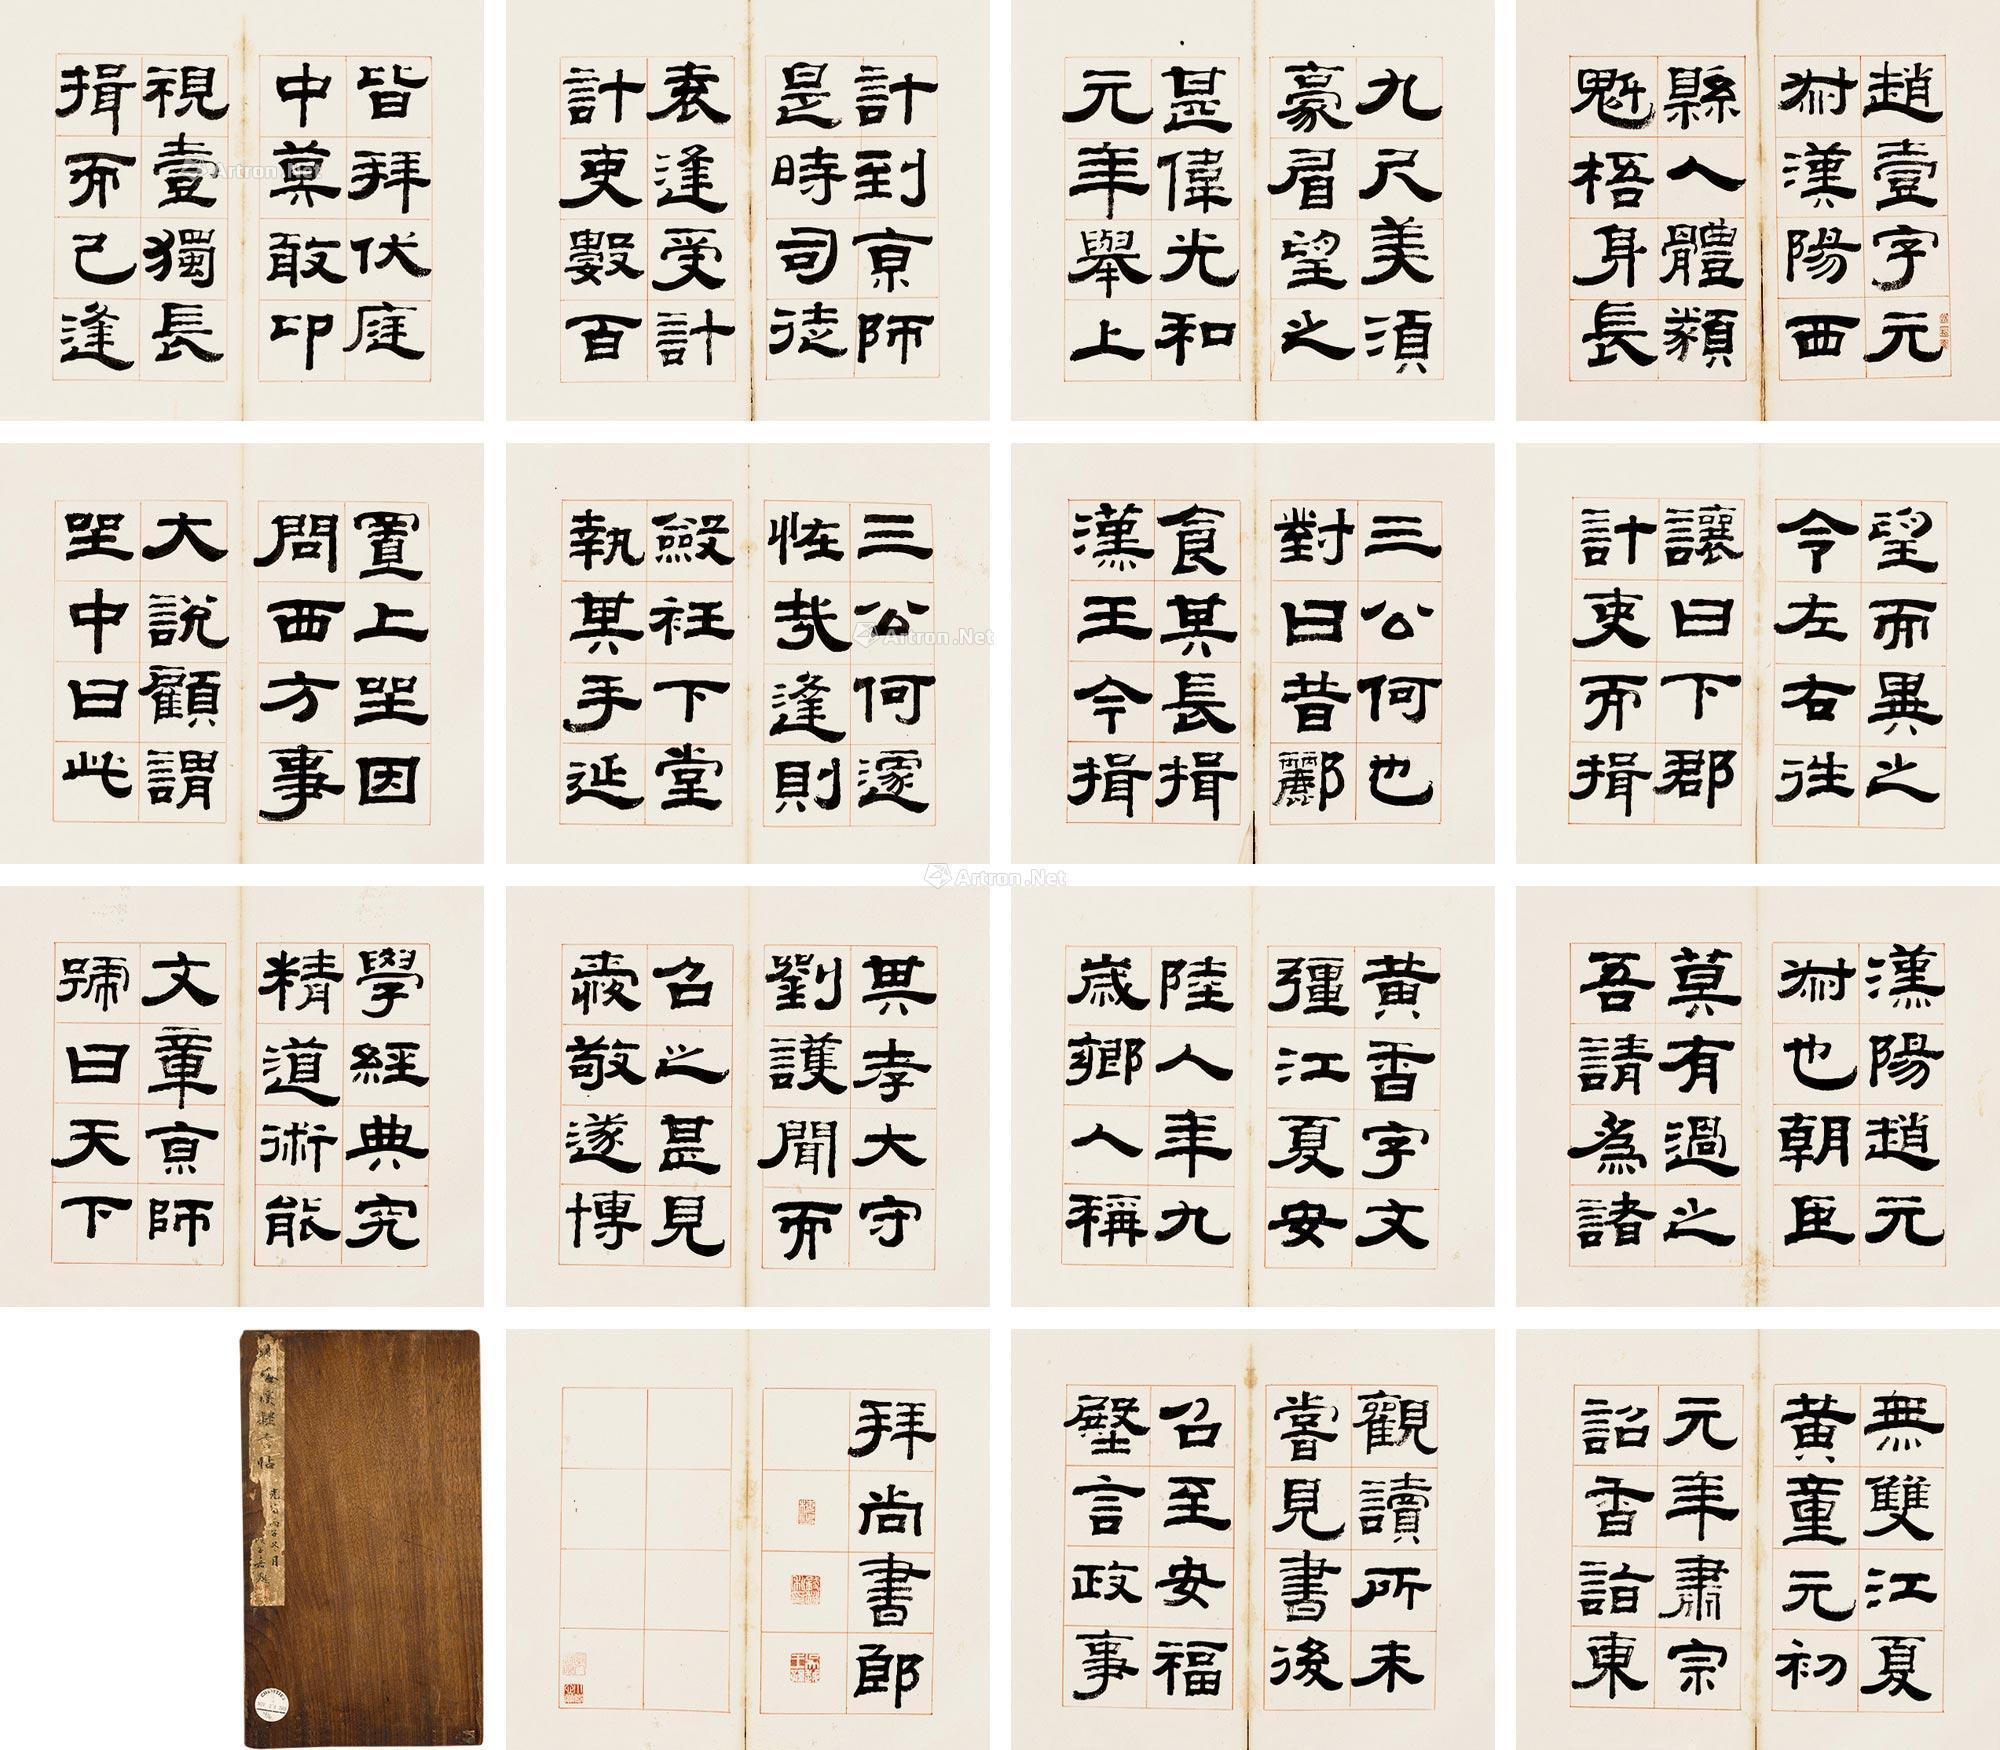 趙壹字元
叔漢陽西
縣人體貌
魁梧身長
九尺美須
豪眉望之
甚偉光和
元年舉上
計到京師
是時司徒
袁逢受計
計吏數百
皆拜伏庭
中莫敢卬
視壹獨長
揖而已逢
望而異之
令左右往
讓曰下郡
計吏而揖
三公何也
對曰昔酈
食其長揖
漢王今揖
三公何遽
怪哉逢則
斂衽下堂
執其手延
置上坐因
問西方事
大說顧謂
坐中曰此
漢陽趙元
叔也朝臣
莫有過之
吾請為諸
黃香字文
彊江夏安
陸人年九
歲鄉人稱
其孝大守
劉護聞而
召之甚見
愛敬遂博
學經典究
精道術能
文章京師
號曰天下
無雙江夏
黃童元初
元年肅宗
詔香詣東
觀讀所未
嘗見書後
召至安福
殿言政事
拜尚書郎
Artron.Net
Artron.Net
Artron.Net